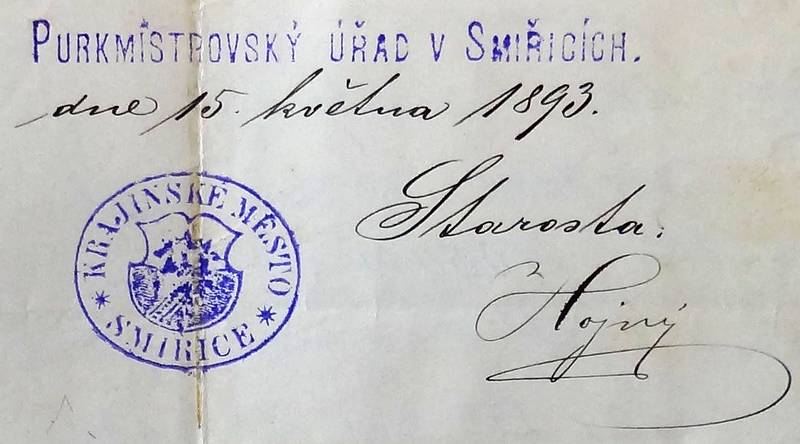 PURKMISTROVSKÝ ÚŘAD V SMIŘICÍCH.
dne 15. května 1893.
KRAJINSKÉ MĚSTO
* SMIŘICE *
Starosta:
Hojný